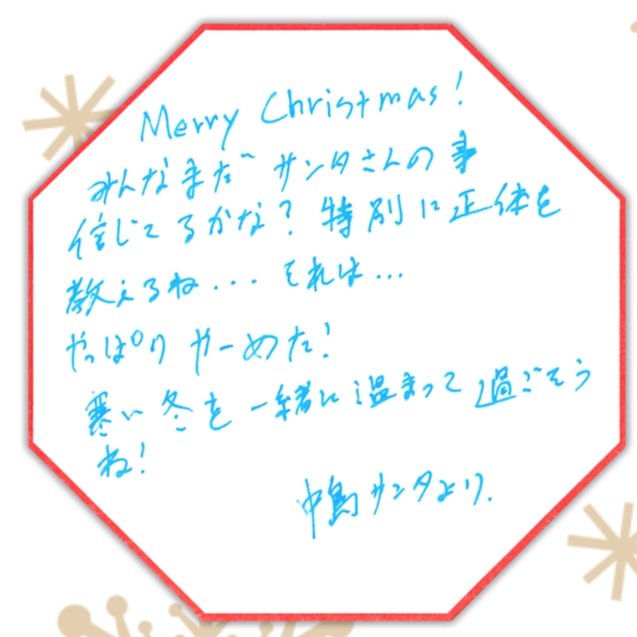 Merry Christmas!
みんなまだサンタさんの事
信じてるかな？特別に正体を
教えるね...それは...
やっぱりやーめた！
寒い冬を一緒に温まって過ごそう
ね！
中島サンタより.